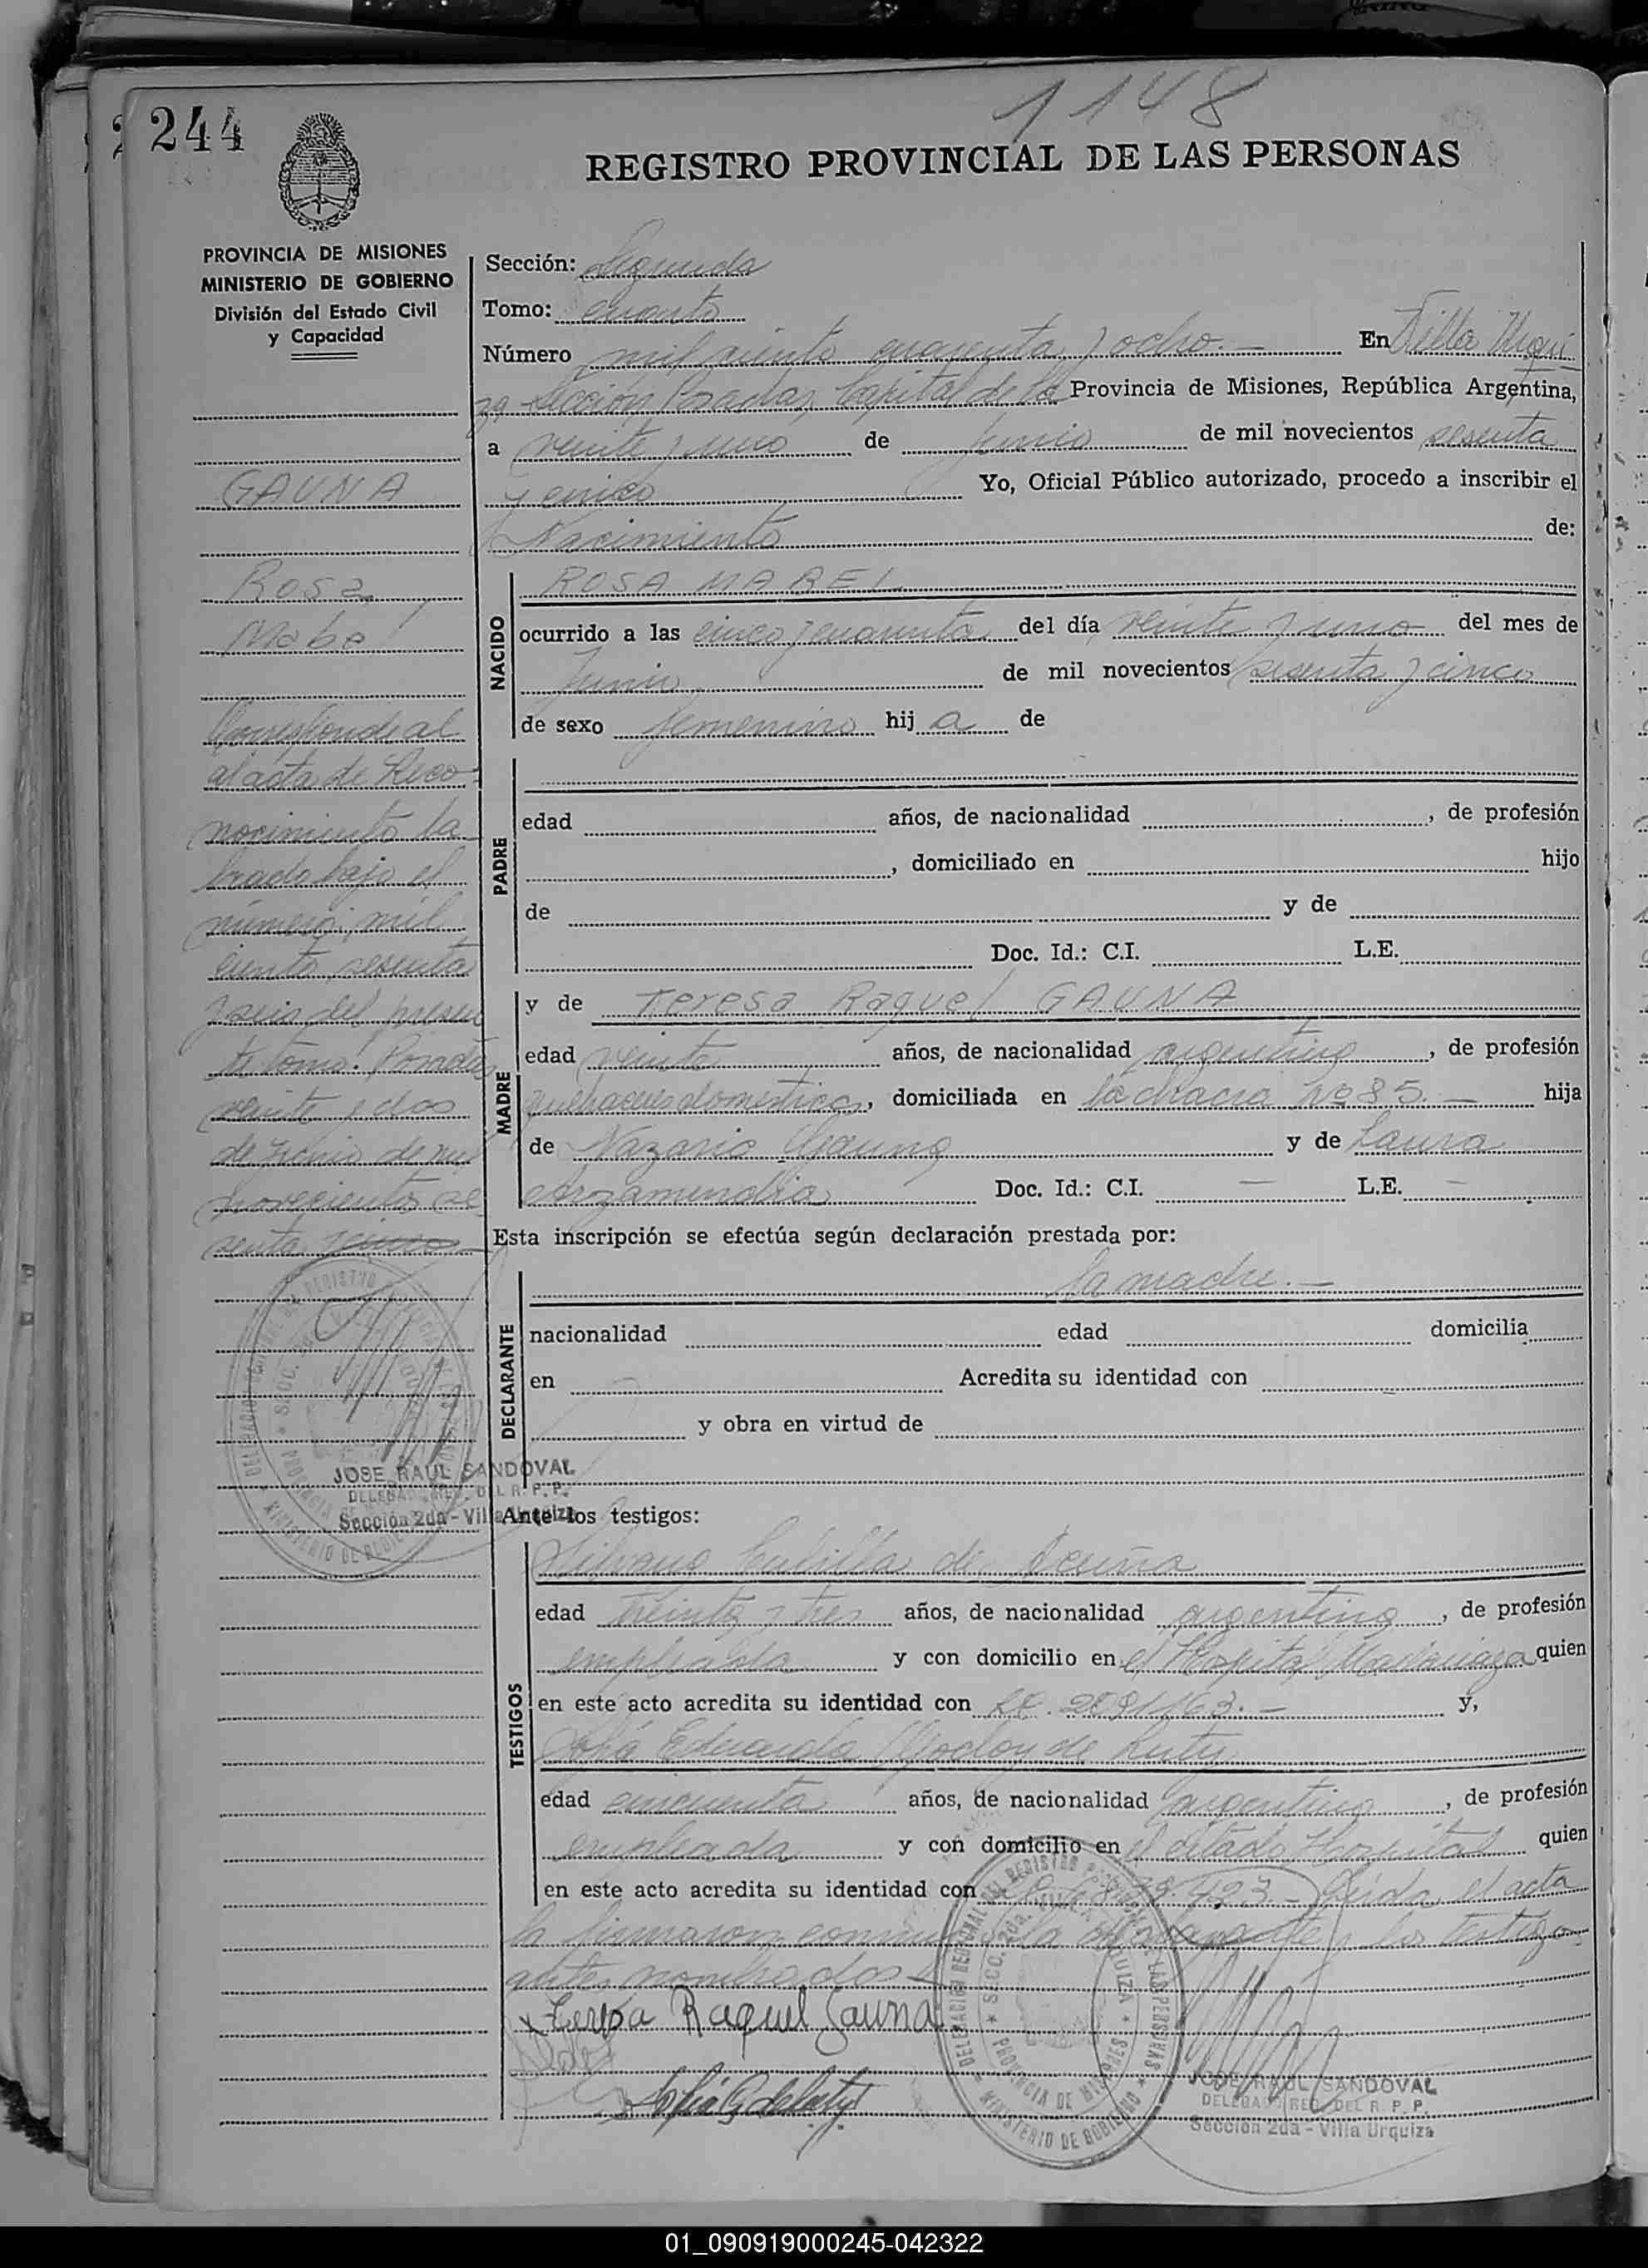 1148
244
REGISTRO PROVINCIAL DE LAS PERSONAS
PROVINCIA DE MISIONES
MINISTERIO DE GOBIERNO
División del Estado Civil
y Capacidad
GAUNA
Rosa
Mabel
Corresponde al
al acta de Reco-
nocimiento la-
brado bajo el
número: mil
ciento sesenta
y seis del presen
te tomo. Posadas
veinte y dos
de Junio de mil
novecientos se
senta y cinco
JOSE RAUL SANDOVAL
DELEGADO REG. DEL R. P. P.
Sección 2da - Villa Urquiza
Sección: Segunda
Tomo: cuarto
Número mil ciento cuarenta y ocho.- En Villa Urqui
za Sección Posadas, Capital de la Provincia de Misiones, República Argentina,
a veinte y uno de Junio de mil novecientos sesenta
y cinco Yo, Oficial Público autorizado, procedo a inscribir el
Nacimiento de:
NACIDO
ROSA MABEL
ocurrido a las cinco y cuarenta del día veinte y uno del mes de
Junio de mil novecientos sesenta y cinco
de sexo femenino hija de
PADRE
edad años, de nacionalidad , de profesión
, domiciliado en hijo
de y de
Doc. Id.: C.I. L.E.
MADRE
y de Teresa Raquel GAUNA
edad veinte años, de nacionalidad argentina, de profesión
quehaceres domésticos, domiciliada en la chacra Nº 85.- hija
de Nazario Gauna y de Laura
Arzamendia Doc. Id.: C.I. - L.E. -
Esta inscripción se efectúa según declaración prestada por:
DECLARANTE
la madre.-
nacionalidad edad domicilia
en Acredita su identidad con
y obra en virtud de
Ante los testigos:
TESTIGOS
Silvana Cubilla de Acuña
edad treinta y tres años, de nacionalidad argentina, de profesión
empleada y con domicilio en el Hospital Madariaga quien
en este acto acredita su identidad con 2091163.- y,
Sofía Eduarda Godoy de Luty
edad cincuenta años, de nacionalidad argentina, de profesión
empleada y con domicilio en el citado Hospital quien
en este acto acredita su identidad con 923- Leída el acta
la firmaron conmigo la declarante y los testigos
antes nombrados-
x Teresa Raquel Gauna
Sofía G de Luty
DELEGACION REGIONAL DEL REGISTRO PROVINCIAL DE LAS PERSONAS
SECC. 2da. VILLA URQUIZA
PROVINCIA DE MISIONES
MINISTERIO DE GOBIERNO
JOSE RAUL SANDOVAL
DELEGADO REG. DEL R. P. P.
Sección 2da - Villa Urquiza
01_090919000245-042322